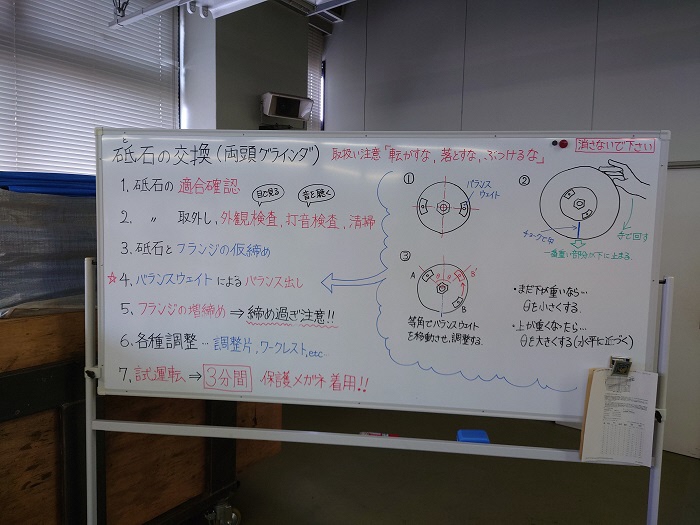 砥石の交換(両頭グラインダ)
と
取扱い注意「転がすな、落とすな、ぶつけるな」
消さないで下さい
1. 砥石の適合確認
目で見る
音を聴く
2. 〃 取外し、外観検査、打音検査、清掃
3. 砥石とフランジの仮締め
☆4. バランスウェイトによるバランス出し
5. フランジの増締め ⇒ 締め過ぎ注意!!
6. 各種調整…調整片、ワークレスト,etc…
7. 試運転 ⇒ 3分間 保護メガネ着用!!
①
バランス
ウェイト
②
手で回す
チョークで印
一番重い部分が下に止まる.
③
A
θ
θ
B'
B
等角でバランスウェイト
を移動させ、調整する.
・まだ下が重いなら…
θを小さくする.
・上が重くなったら…
θを大きくする(水平に近づく)